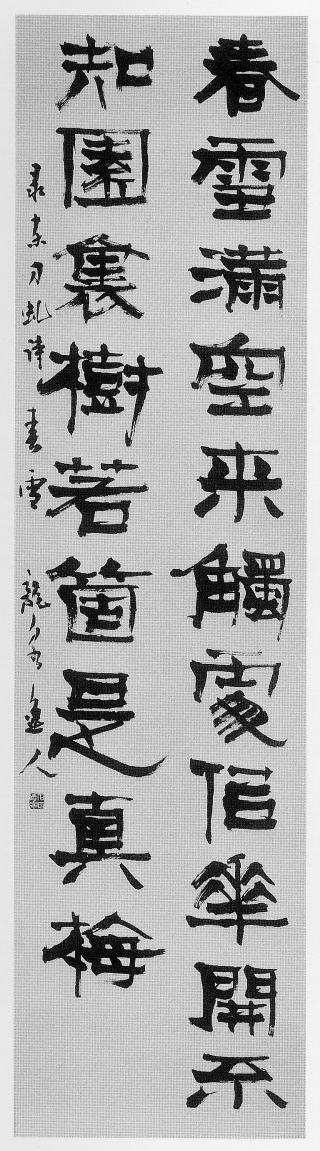 春雪滿空来觸處似華開不
知園裏樹若箇是真梅
录东方虬诗春雪 龍 逸人